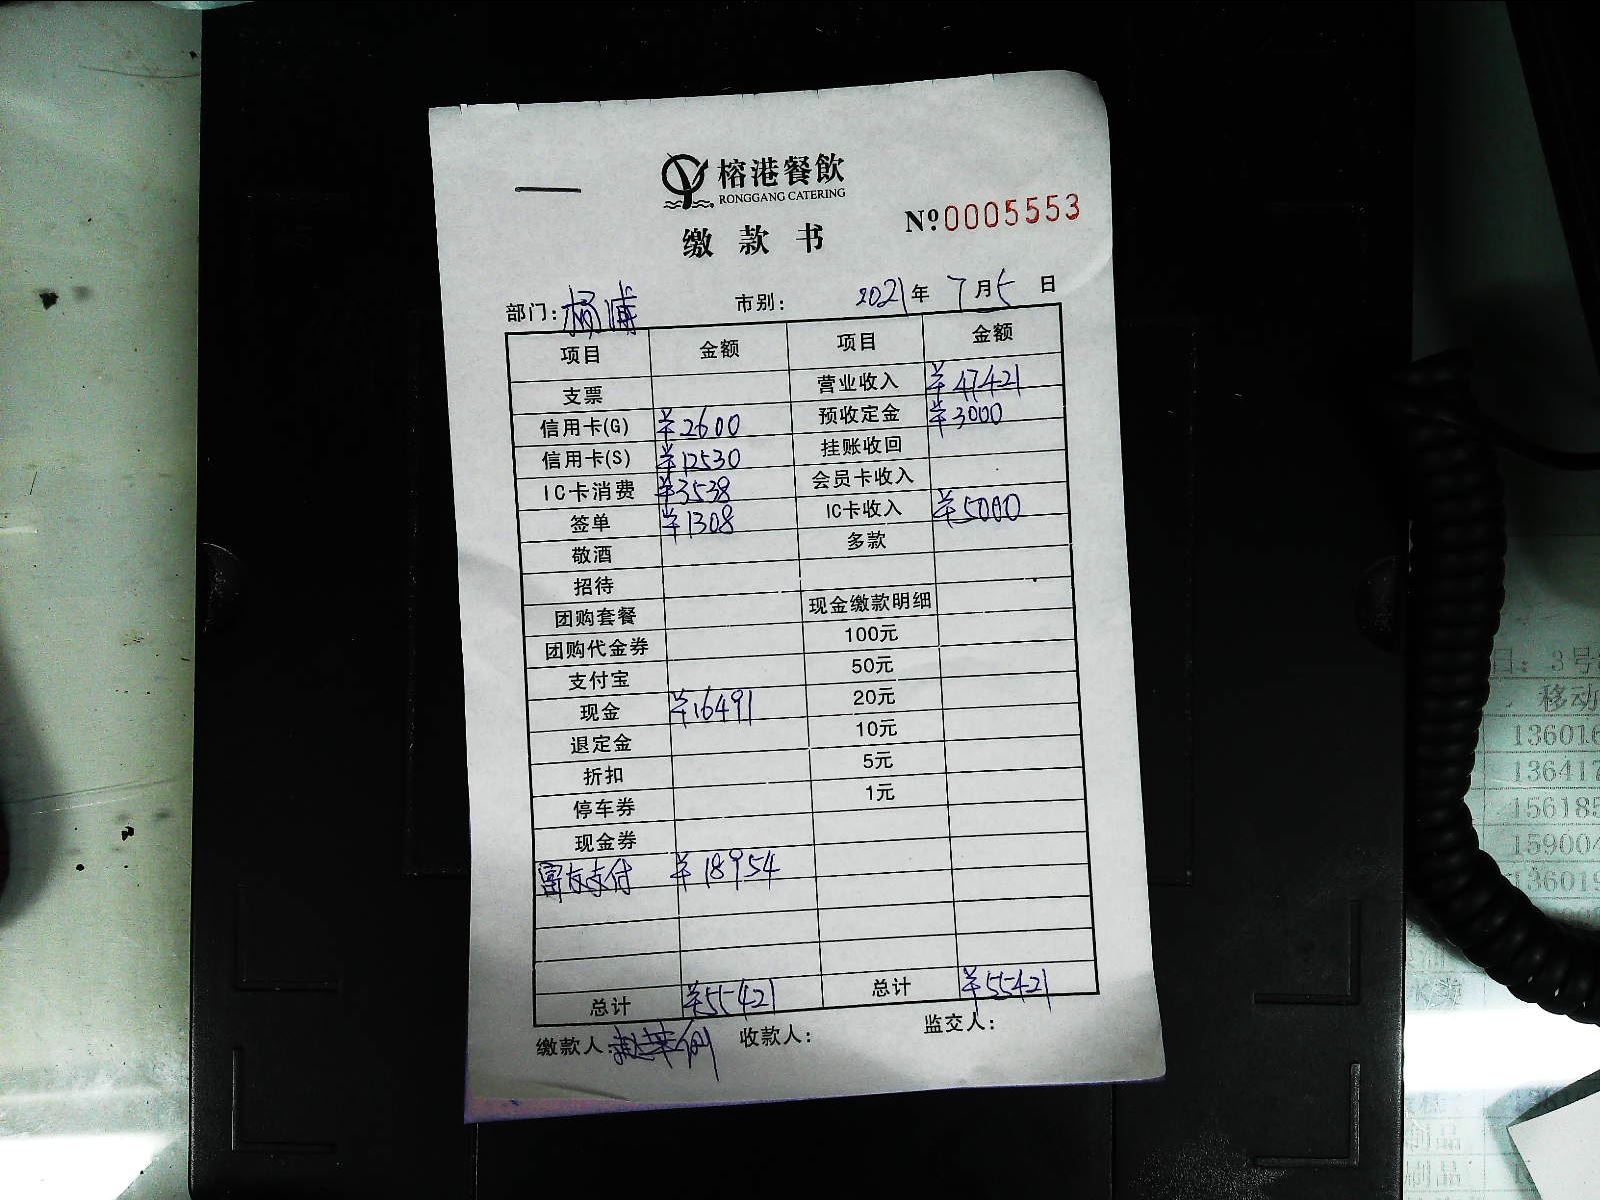 榕港餐飲
RONGGANG CATERING
缴款书
№0005553
部门：杨浦 市别： 2021年7月5日
项目 金额 项目 金额
支票 营业收入 ¥47421
信用卡(G) ¥2600 预收定金 ¥3000
信用卡(S) ¥12530 挂账收回
IC卡消费 ¥3538 会员卡收入
签单 ¥1308 IC卡收入 ¥5000
敬酒 多款
招待
团购套餐 现金缴款明细
团购代金券 100元
支付宝 50元
现金 ¥16491 20元
退定金 10元
折扣 5元
停车券 1元
现金券
富友支付 ¥18954
总计 ¥55421 总计 ¥55421
缴款人： 收款人： 监交人：
目：3号
移动
13601
13641
15618
15900
13601
制品
制品